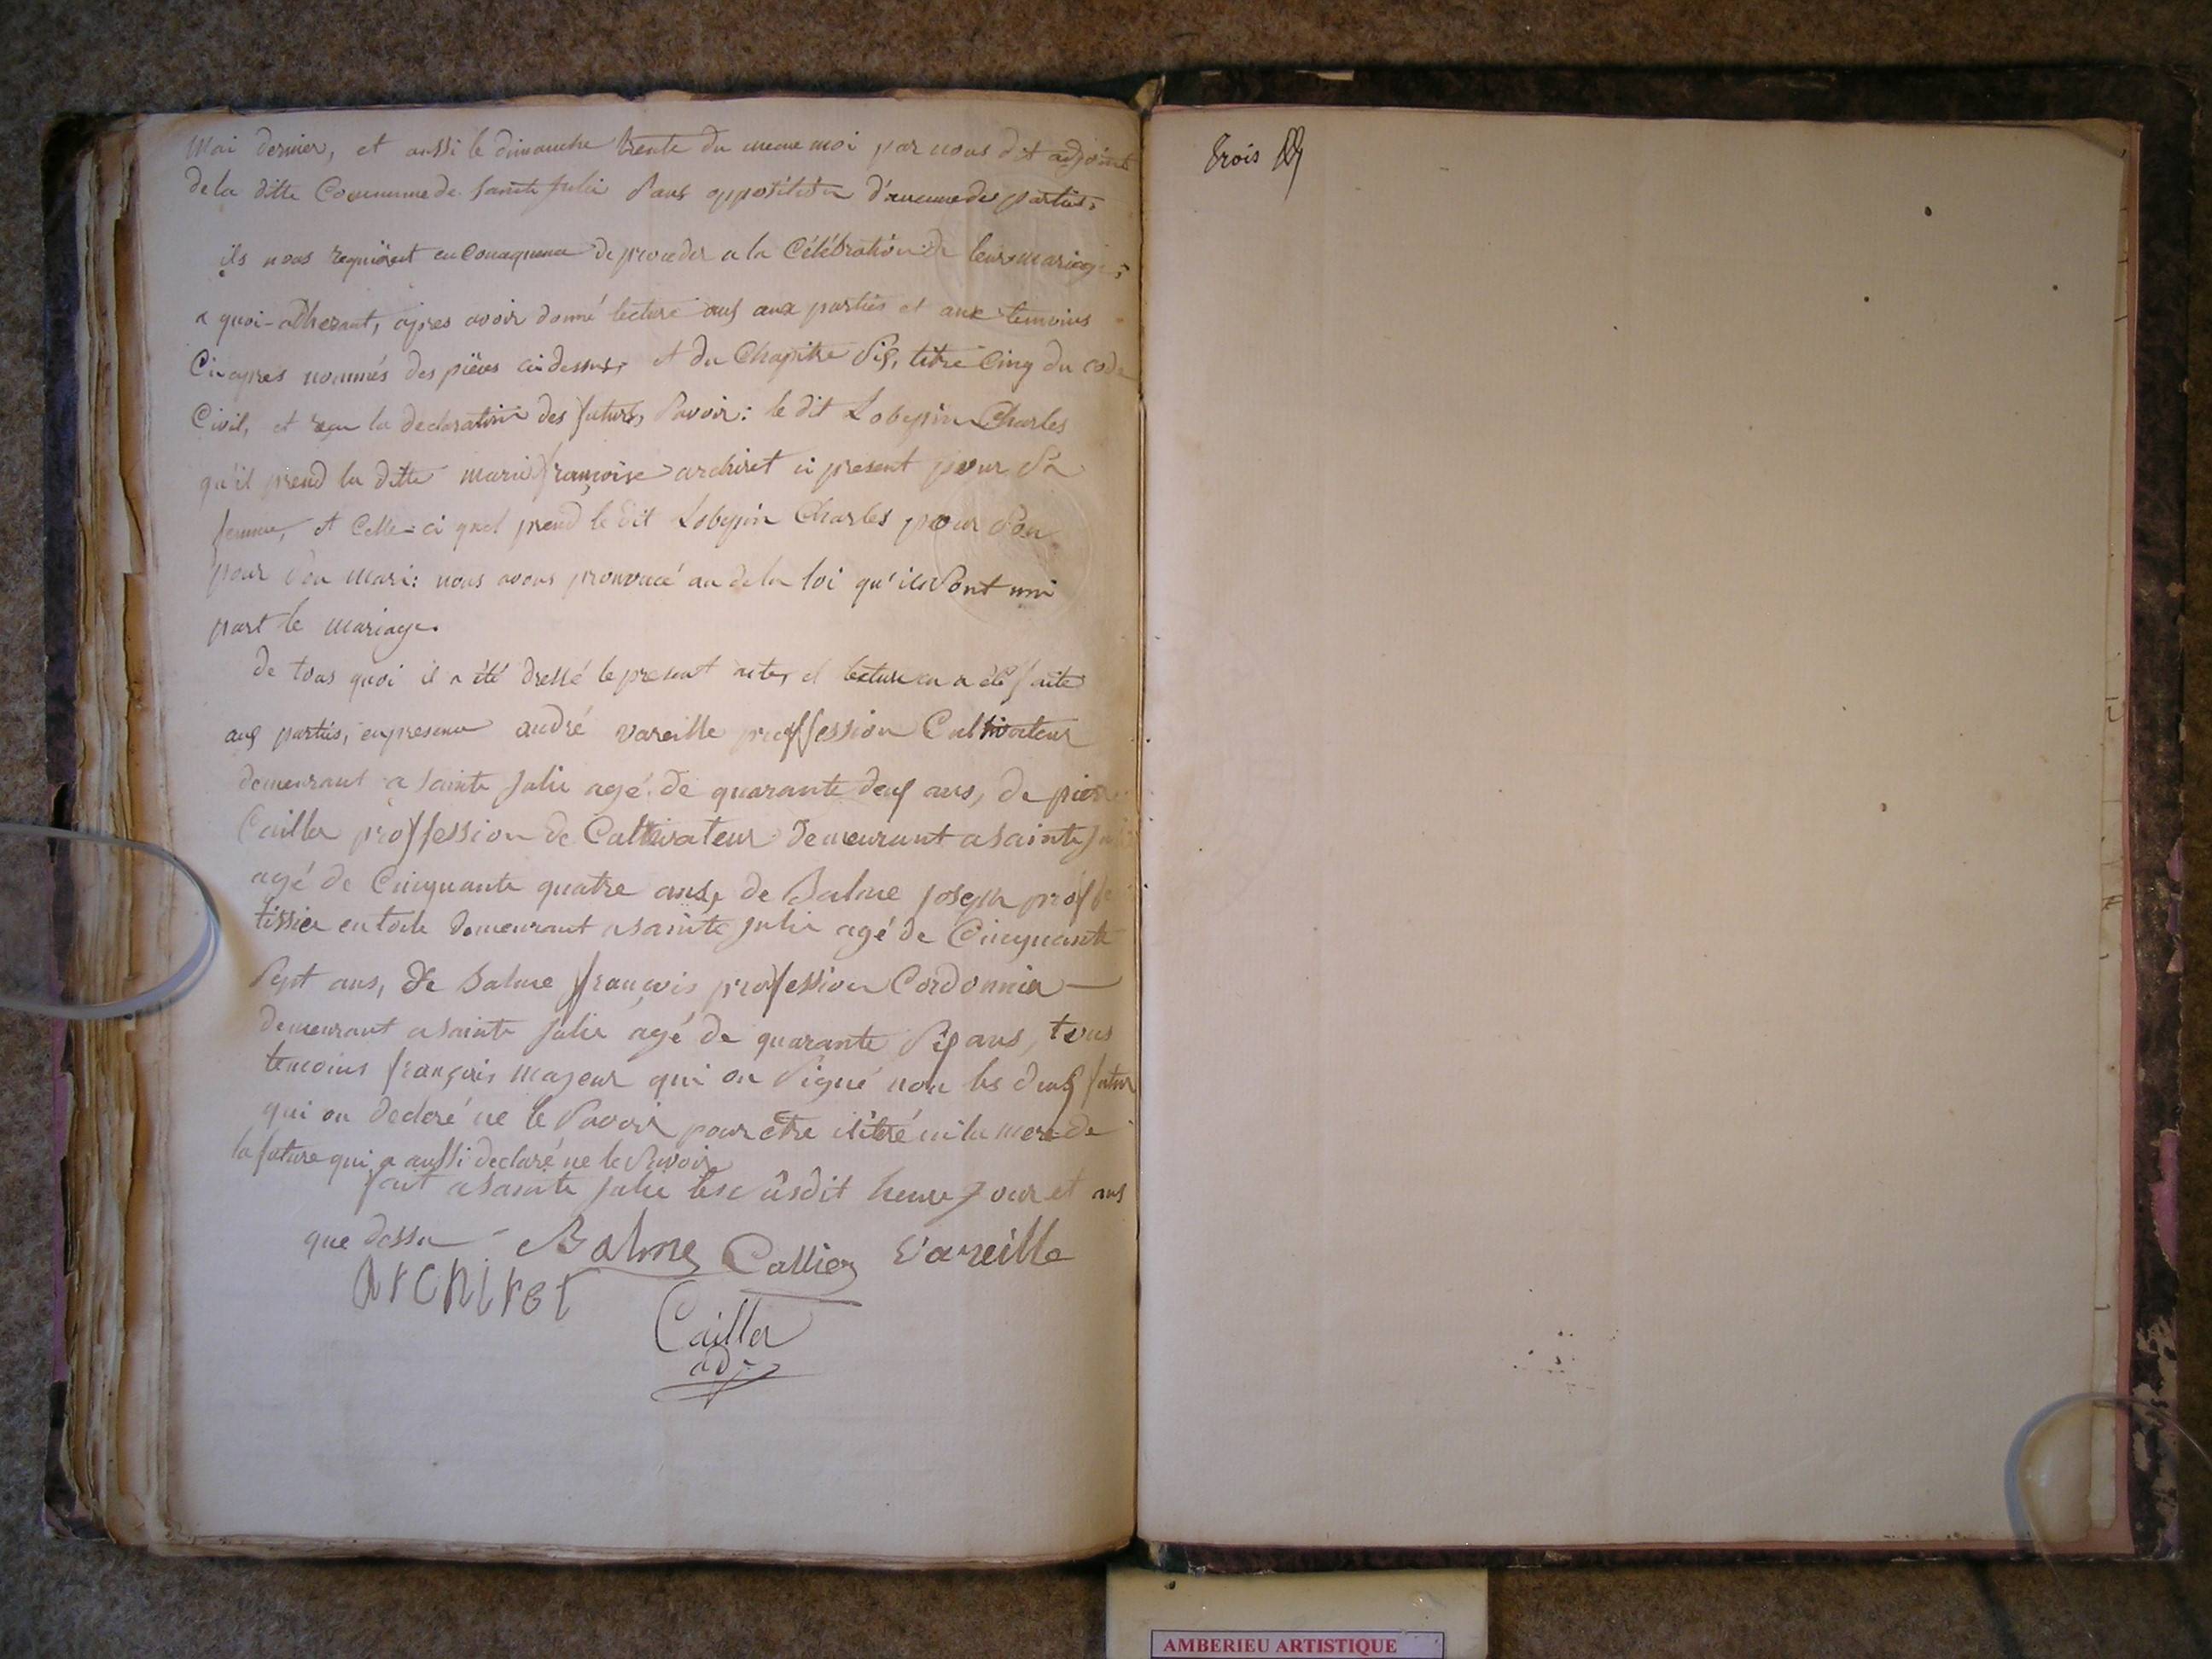 Mai dernier, et aussi le dimanche trente du meme moi par nous dit adjoint
de la ditte Commune de Sainte Julie Sans opposition d'aucune des parties,
ils nous requièret en Consequence de proceder a la Célébration de leur mariage;
a quoi-adherant, apres avoir donné lecture aux aux parties et aux temoins
Ci apres nommés des pièces ci dessus, et du Chapitre Six, titre Cinq du code
Civil, et reçu la declaration des futurs, Savoir: le dit Lobepin Charles
qu'il prend la ditte marie françoise archiret ci present pour Sa
femme, et Celle-ci quel prend le dit Lobepin Charles pour Son
pour Son mari: nous avons prononcé au de la loi qu'ils Sont uni
part le mariage.
de tous quoi il a été dressé le present acte, et lecture en a été faite
aux parties, en presence andré vareille proffession Cultivateur
demeurant a Sainte Julie agé de quarante deux ans, de pierre
Cailler proffession de Cultivateur demeurant a Sainte Julie
agé de Cinquante quatre ans, de Balme Joseph proffe
tissier en toile demeurant a Sainte Julie agé de Cinquante
Sept ans, de Balme françois proffession Cordonnier
demeurant a Sainte Julie agé de quarante Six ans, tous
temoins français majeur qui on Signé non les deux futur
qui on decleré ne le Savoir pour etre iliteré ni la mere de
la future qui a aussi declaré ne le Savoir
fait a Sainte Julie les susdit heure jour et ans
que dessu Balme Callier Vareille
Archiret
Cailler
adj
Trois
AMBERIEU ARTISTIQUE